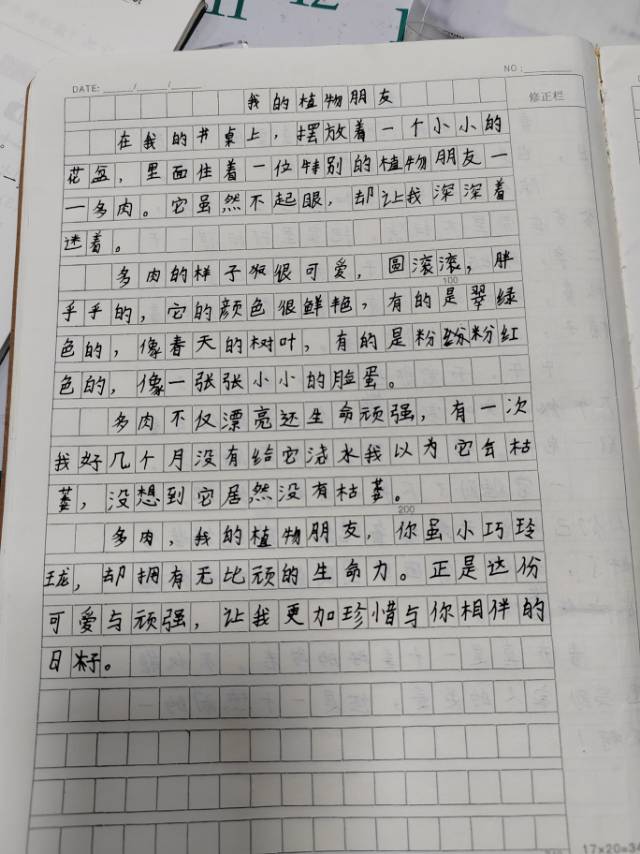 11 12 1
DATE: ____/____/____
NO.:
修正栏
我的植物朋友
在我的书桌上，摆放着一个小小的
花盆，里面住着一位特别的植物朋友一
一多肉。它虽然不起眼，却让我深深着
迷着。
多肉的样子很可爱，圆滚滚，胖
乎乎的，它的颜色很鲜艳，有的是翠绿
色的，像春天的树叶，有的是粉粉红
色的，像一张张小小的脸蛋。
100
多肉不仅漂亮还生命顽强，有一次
我好几个月没有给它浇水我以为它会枯
萎，没想到它居然没有枯萎。
200
多肉，我的植物朋友，你虽小巧玲
珑，却拥有无比顽的生命力。正是这份
可爱与顽强，让我更加珍惜与你相伴的
日子。
17×20=34